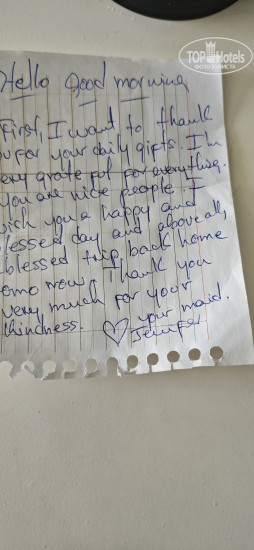 TOP Hotels
Hello good morning
First, I want to thank
u for your daily gifts. I'm
ery grateful for everything.
You are nice people. I
ish you a happy and
lessed day and above all,
blessed trip, back home
omorrow. Thank you
very much for your
kindness. ♡ your maid.
Jennifer